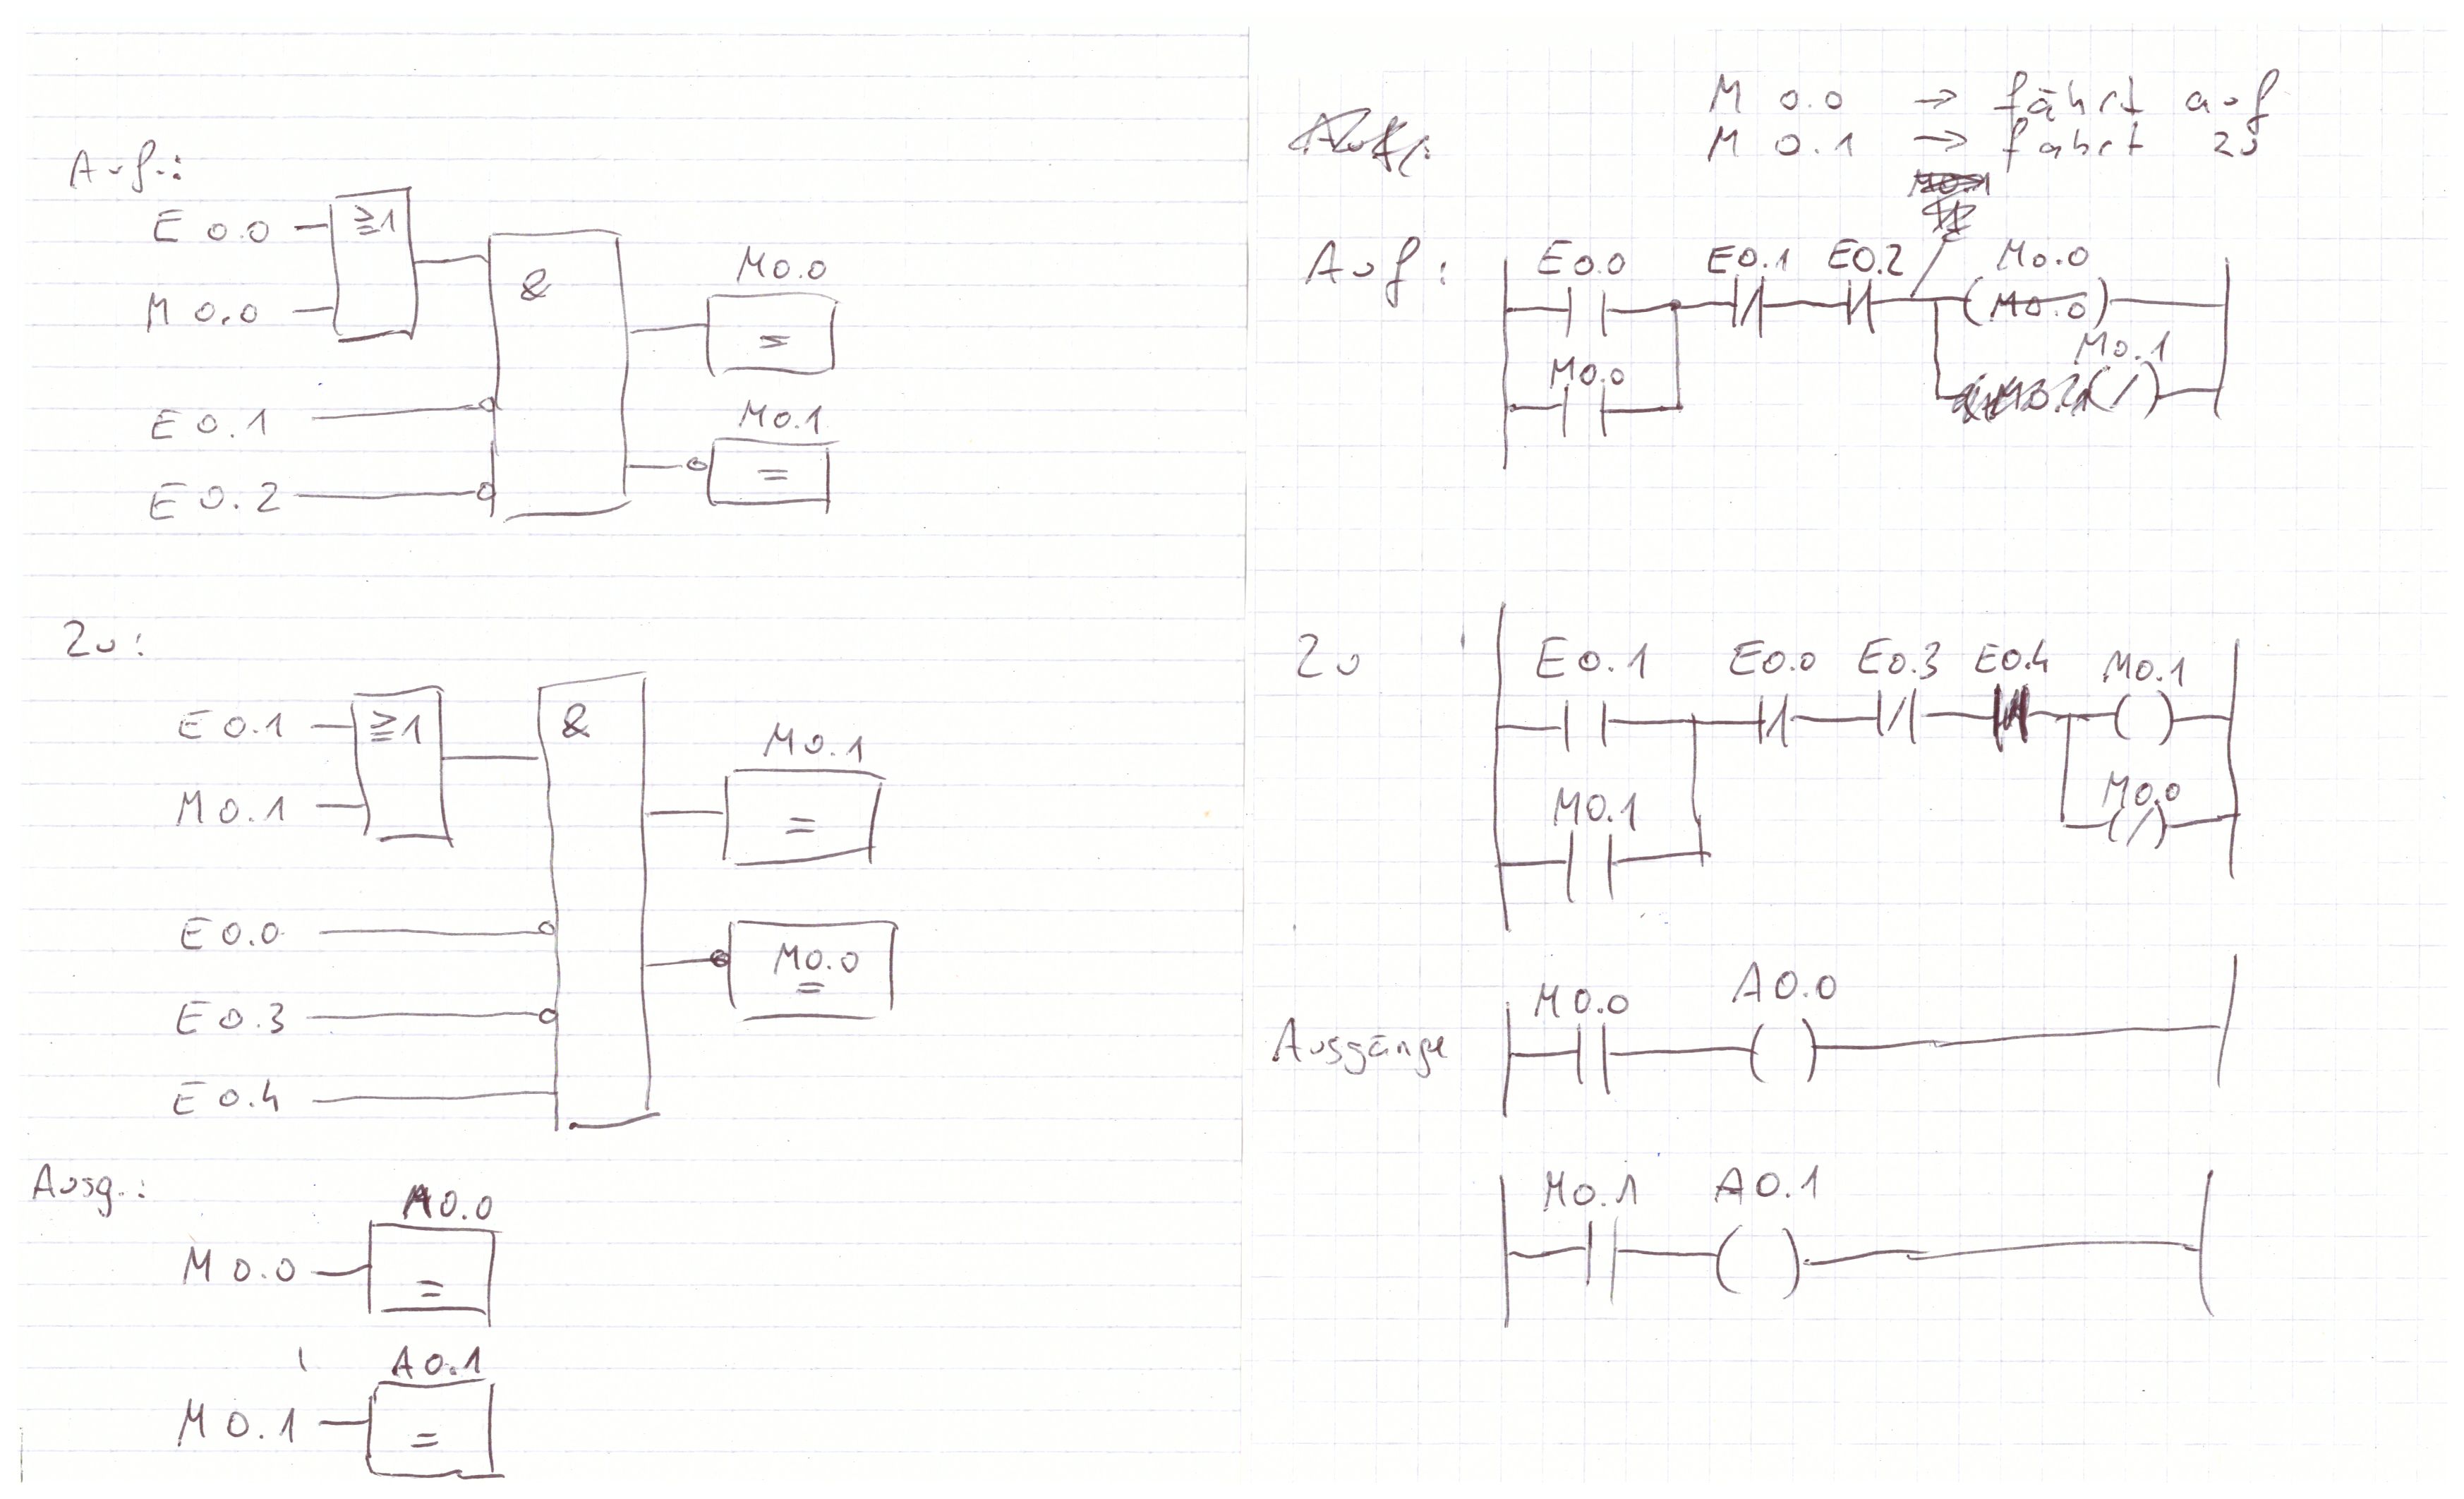 Auf.:
E 0.0
≥1
M 0.0
&
E 0.1
E 0.2
M0.0
=
M0.1
=
Zu:
E 0.1
≥1
M 0.1
&
E 0.0
E 0.3
E 0.4
M0.1
=
M0.0
=
Ausg.:
A0.0
M 0.0
=
A0.1
M 0.1
=
M 0.0 → fährt auf
M 0.1 → fährt zu
Auf:
E0.0 E0.1 E0.2 M0.0
(M0.0)
M0.0
M0.1
(/)
Zu
E0.1 E0.0 E0.3 E0.4 M0.1
( )
M0.1
M0.0
(/)
Ausgänge
M0.0 A0.0
( )
M0.1 A0.1
( )